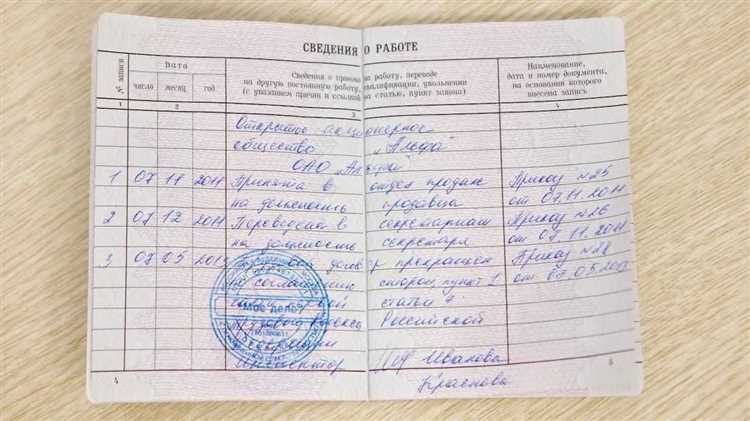 СВЕДЕНИЯ О РАБОТЕ
№ записи
Дата
число месяц год
Сведения о приеме на работу, переводе
на другую постоянную работу, квалификации, увольнении
(с указанием причин и ссылкой на статью, пункт закона)
Наименование,
дата и номер документа,
на основании которого
внесена запись
1 2 3 4
Открытое акционерное
общество „Альфа"
ОАО
1 07 11 2011 Принята в отдел продаж Приказ №25
на должность продавца от 07.11.2011
2 07 12 2011 Переведена в секретариат Приказ №26
на должность секретаря от 07.11.2011
3 07 05 прекращен Приказ
по соглашению сторон, пункт 1 от 07.05
статьи
Трудового Кодекса Российской
Федерации
Инспектор Иванова
Краснова
МОЕ ДЕЛО
4
5